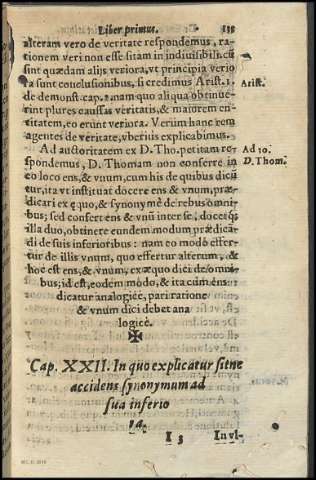 Liber primus. 135
alteram vero de veritate respondemus, ra-
tionem veri non esse sitam in indiuisibili: cũ
sint quædam alijs veriora, vt principia verio
ra sunt conclusionibus, si credimus Arist. 1. Arist.
de demonst. cap. 2. nam quo aliqua obtinue-
rint plures causas veritatis, & maiorem en-
titatem, eo erunt veriora. Verum hanc rem
agentes de veritate, vberius explicabimus.
Ad auctoritatem ex D. Tho. petitam re- Ad 10.
spondemus, D. Thomam non conferre in D. Thom.
eo loco ens, & vnum, cum his de quibus dicũ
tur, ita vt instituat docere ens & vnum, præ-
dicari ex ęquo, & synonymè de rebus omni-
bus; sed confert ens & vnũ inter se, docetq́;
illa duo, obtinere eundem modum prædica-
di de suis inferioribus: nam eo modò effer-
tur de illis vnum, quo effertur alterum, &
hoc est ens, & vnum, ex æquo dici de omni-
bus, id est, eodem mòdo, & ita cùm ens
dicatur analogicè, pari ratione
& vnum dici debet ana
logicè.
Cap. XXII. In quo explicatur sitne
accidens synonymum ad
sua inferio
ra.
I 3 In vl-